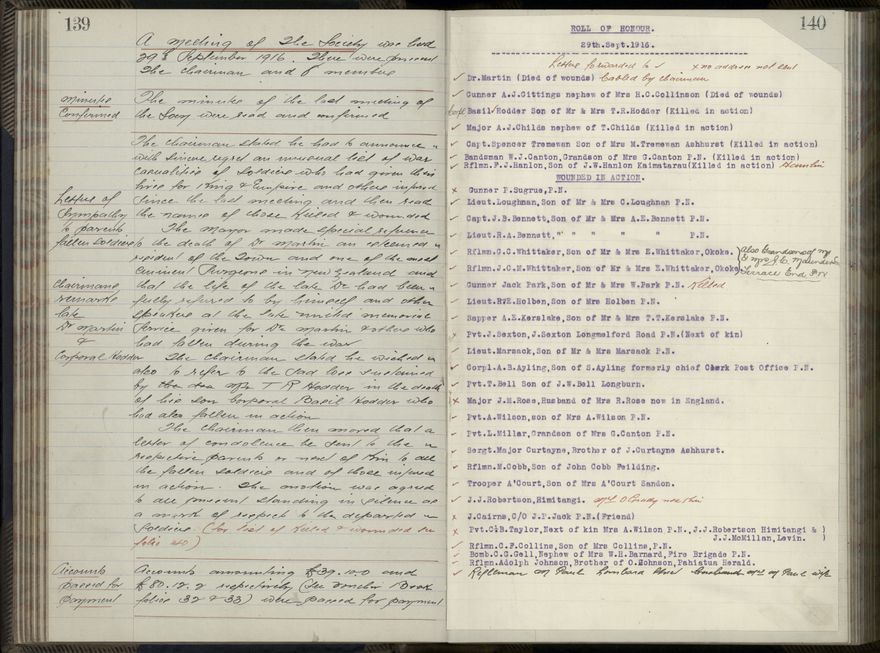 139
A meeting of the Society was held
29th September 1916. There were present
the Chairman and 8 members
Minutes
Confirmed
The minutes of the last meeting of
the Socy were read and confirmed
The Chairman stated he had to announce
with sincere regret an unusual list of war
casualties of soldiers who had given their
lives for King & Empire and others injured
since the last meeting and then read
the names of those killed & wounded
Letters of
Sympathy
to parents
fallen soldiers
The Mayor made special reference
to the death of Dr Martin an esteemed
resident of the Town and one of the most
eminent Surgeons in New Zealand and
that the life of the late Dr had been
fully referred to by himself and other
speakers at the late united memorial
service given for Dr Martin & others who
had fallen during the war
Chairmans
remarks
late
Dr Martin
&
Corporal Hodder
The Chairman stated he wished
also to refer to the sad loss sustained
by Mr T R Hodder in the death
of his son Corporal Basil Hodder who
had also fallen in action
The Chairman then moved that a
letter of condolence be sent to the
respective parents or next of kin to all
the fallen soldiers and of those injured
in action. The motion was agreed
to all present standing in silence as
a mark of respect to the departed
soldiers. (for list of killed & wounded see
folio 140)
Accounts
passed for
payment
Accounts amounting £39.12.0 and
£80.12.2 respectively (See Voucher Book
folios 32 & 33) were passed for payment
140
ROLL OF HONOUR.
29th.Sept.1916.
Letters forwarded to ✓ x no address not sent
✓ Dr.Martin (Died of wounds) Cabled by Chairman
✓ Gunner A.J.Gittings nephew of Mrs H.C.Collinson (Died of wounds)
✓ Corpl Basil Hodder Son of Mr & Mrs T.R.Hodder (Killed in action)
✓ Major A.J.Childs nephew of T.Childs (Killed in action)
✓ Capt.Spencer Tremewan Son of Mrs M.Tremewan Ashhurst (Killed in action)
✓ Bandsman W.J.Canton,Grandson of Mrs G.Canton P.N. (Killed in action)
✓ Rflmn.F.J.Hanlon,Son of J.W.Hanlon Kaimatarau(Killed in action)
WOUNDED IN ACTION.
x Gunner P.Sugrue,P.N.
✓ Lieut.Loughnan,Son of Mr & Mrs C.Loughnan P.N.
✓ Capt.J.B.Bennett,Son of Mr & Mrs A.E.Bennett P.N.
✓ Lieut.R.A.Bennett," " " " " " P.N.
✓ Rflmn.G.C.Whittaker,Son of Mr & Mrs E.Whittaker,Okoke.
✓ Rflmn.J.O.M.Whittaker,Son of Mr & Mrs E.Whittaker,Okoke.
also Grandsons of Mr
& Mrs J.C. Maunder
Terrace End P.N
✓ Gunner Jack Park,Son of Mr & Mrs W.Park P.N. Killed
✓ Lieut.R.E.Holben,Son of Mrs Holben P.N.
✓ Sapper A.E.Kerslake,Son of Mr & Mrs T.T.Kerslake P.N.
x Pvt.J.Sexton,J.Sexton Longmelford Road P.N.(Next of kin)
✓ Lieut.Marsack,Son of Mr & Mrs Marsack P.N.
✓ Corpl.A.B.Ayling,Son of S.Ayling formerly chief Clerk Post Office P.N.
✓ Pvt.T.Bell Son of J.W.Bell Longburn.
x Major J.M.Rose,Husband of Mrs R.Rose now in England.
✓ Pvt.A.Wilson,son of Mrs A.Wilson P.N.
✓ Pvt.L.Millar,Grandson of Mrs G.Canton P.N.
✓ Sergt.Major Curtayne,Brother of J.Curtayne Ashhurst.
✓ Rflmn.M.Cobb,Son of John Cobb Feilding.
✓ Trooper A'Court,Son of Mrs A'Court Sandon.
✓ J.J.Robertson,Himitangi.
x J.Cairns,C/O J.P.Jack P.N.(Friend)
x Pvt.C.B.Taylor,Next of kin Mrs A.Wilson P.N.,J.J.Robertson Himitangi & )
J.J.McMillan,Levin. )
✓ Rflmn.C.F.Collins,Son of Mrs Collins,P.N.
✓ Bomb.C.G.Gell,Nephew of Mrs W.H.Barnard,Fire Brigade P.N.
✓ Rflmn.Adolph Johnson,Brother of C.Johnson,Pahiatua Herald.
✓ Rifleman